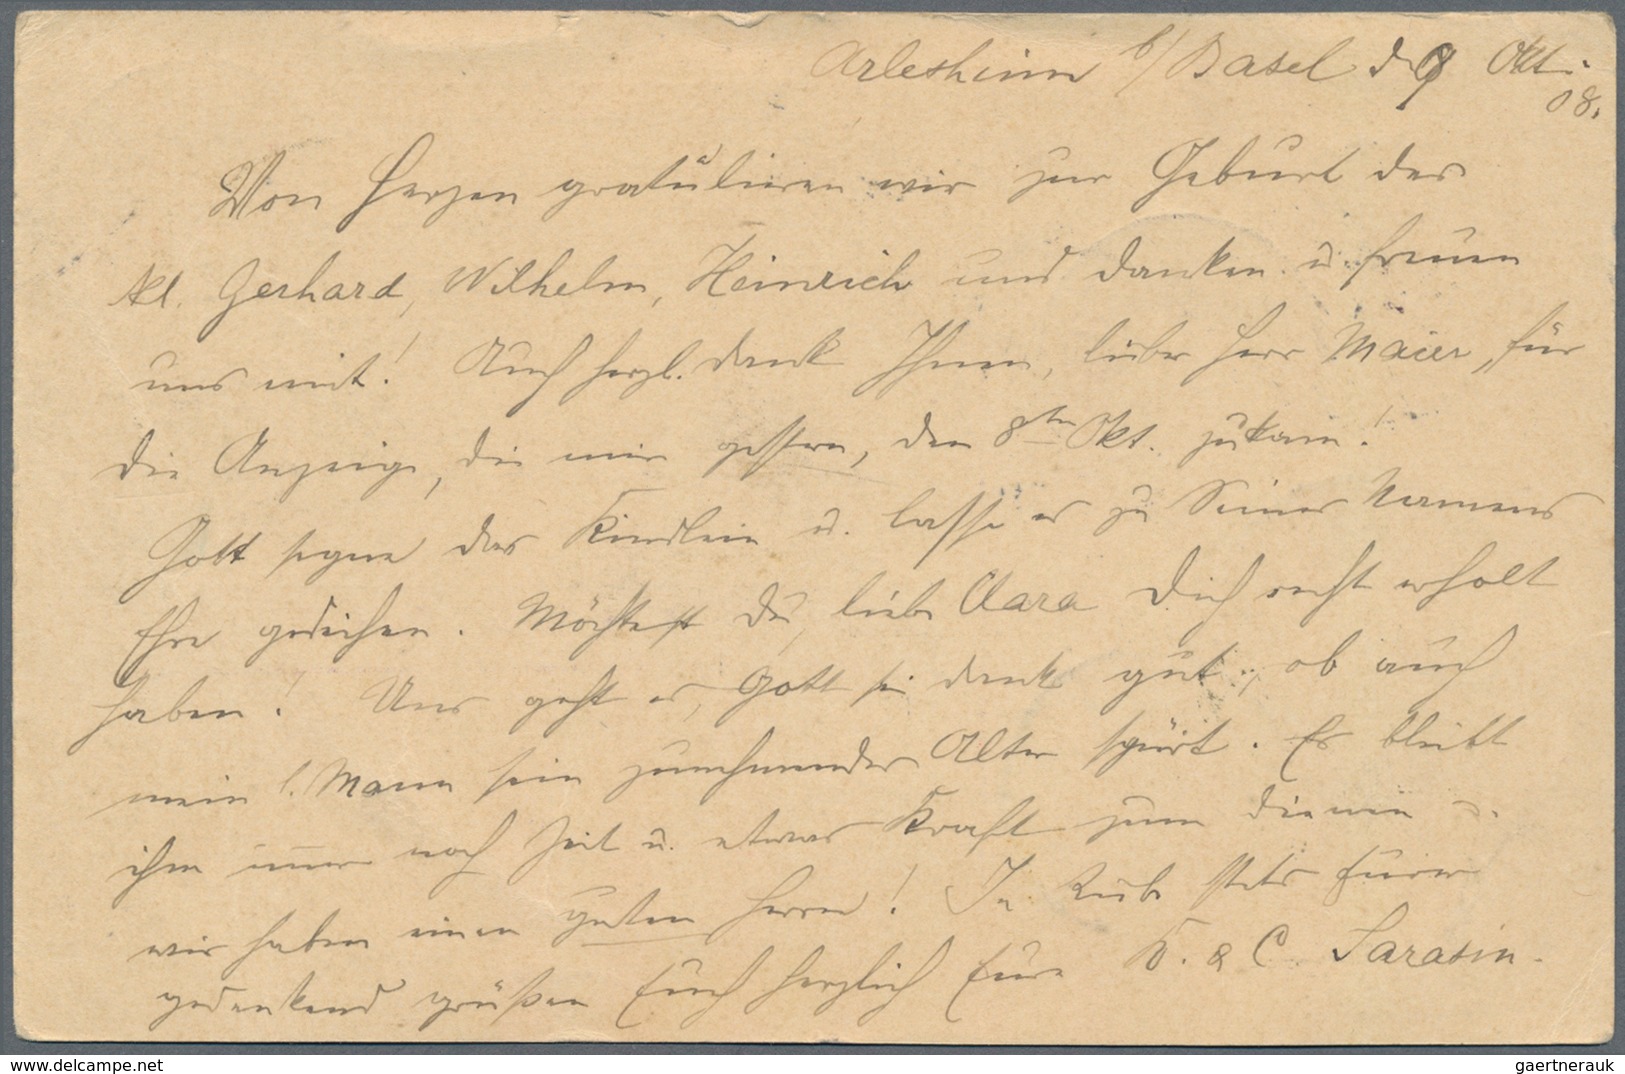 Arlesheim b/Basel d. 9 Okt.
08.
Von Herzen gratulieren wir zur Geburt des
kl. Gerhard, Wilhelm, Heinrich und danken u. freuen
uns mit! Auch herzl. Dank Ihnen, lieber Herr Maier, für
die Anzeige, die mir gestern, den 8ten Okt. zukam!
Gott segne das Kindlein u. lasse es zu Seines Namens
Ehre gedeihen. Möchtest du, liebe Clara Dich recht erholt
haben! Uns geht es, Gott sei dank gut, ob auch
mein l. Mann sein zunehmendes Alter spürt. Es bleibt
ihm immer noch Zeit u. etwas Kraft zum dienen u.
wir haben einen guten Herrn! In Liebe stets Eurer
gedenkend grüßen Euch herzlich Eure K. & C. Sarasin.
gaertnerauk